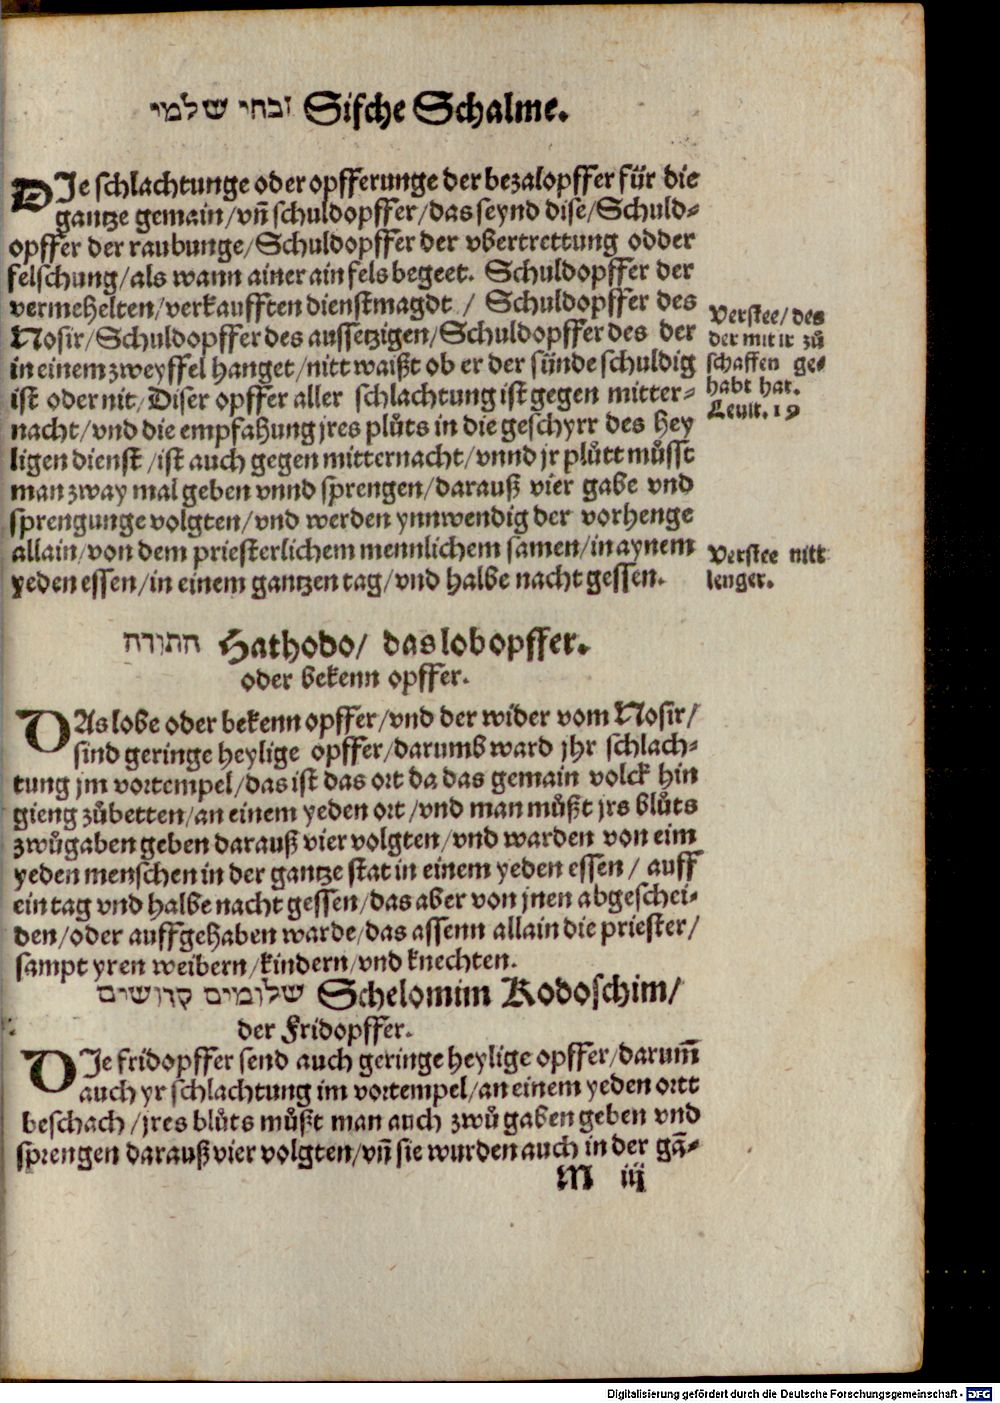 זבחי שלמי Sifche Schalme.
DIe schlachtunge oder opfferunge der bezalopffer für die
gantze gemain/vñ schuldopffer/das seynd dise/Schuld-
opffer der raubunge/Schuldopffer der vbertrettung odder
felschung/als wann ainer ain fels begeet. Schuldopffer der
vermehelten/verkaufften dienstmagdt / Schuldopffer des
Nosir/Schuldopffer des aussetzigen/Schuldopffer des der
in einem zweyffel hanget/nitt waißt ob er der sünde schuldig
ist oder nit/Diser opffer aller schlachtung ist gegen mitter-
nacht/vnd die empfahung jres plůts in die geschyrr des hey
ligen dienst/ist auch gegen mitternacht/vnnd jr plůtt můsst
man zway mal geben vnnd sprengen/darauß vier gabe vnd
sprengunge volgten/vnd werden ynnwendig der vorhenge
allain/von dem priesterlichem mennlichem samen/in aynem
yeden essen/in einem gantzen tag/vnd halbe nacht gessen.
Verstee/des
der mit ir zů
schaffen ge-
habt hat.
Leuit. 19
Verstee nitt
lenger.
התודה Hathodo/ das lobopffer.
oder bekenn opffer.
DAs lobe oder bekenn opffer/vnd der wider vom Nosir/
sind geringe heylige opffer/darumb ward jhr schlach-
tung jm vortempel/das ist das ort da das gemain volck hin
gieng zůbetten/an einem yeden ort/vnd man můßt jrs blůts
zwůgaben geben darauß vier volgten/vnd warden von eim
yeden menschen in der gantze stat in einem yeden essen/ auff
ein tag vnd halbe nacht gessen/das aber von jnen abgeschei-
den/oder auffgehaben warde/das assenn allain die priester/
sampt yren weibern/kindern/vnd knechten.
שלומים קדושים Schelomim Kodoschim/
der Fridopffer.
DIe fridopffer send auch geringe heylige opffer/darum̄
auch yr schlachtung im vortempel/an einem yeden ortt
beschach/jres blůts můßt man auch zwů gaben geben vnd
sprengen darauß vier volgten/vñ sie wurden auch in der gā-
M iij
Digitalisierung gefördert durch die Deutsche Forschungsgemeinschaft - DFG